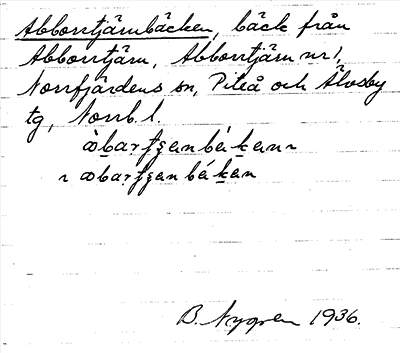 Abborrtjärnbäcken, bäck från
Abborrtjärn, Abborrtjärn nr 1,
Norrfjärdens sn, Piteå och Älvsby
tg, Norrb. l.
B. Nygren 1936.